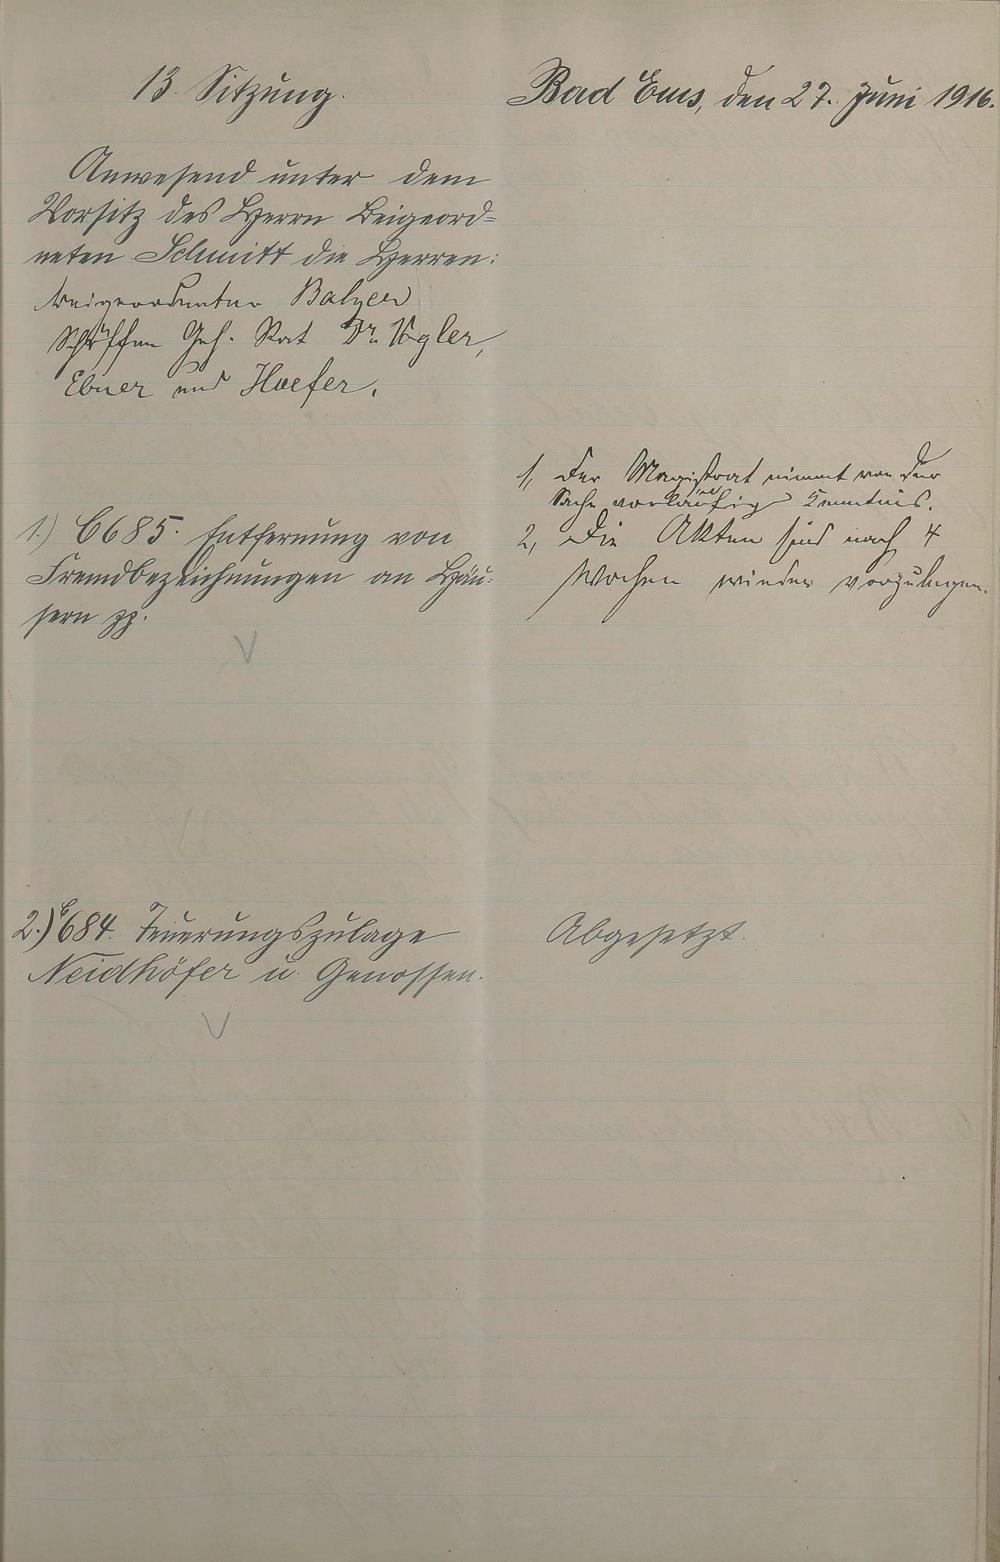 13. Sitzung.
Bad Ems, den 27. Juni 1916.
Anwesend unter dem
Vorsitz des Herrn Beigeord=
neten Schmitt die Herren:
Beigeordneter Balzer
Schöffen Geh. Rat Dr. Vogler,
Ebner und Hoefer.
1.) C685. Entfernung von
Fremdbezeichnungen an Häu=
sern pp.
1, Der Magistrat nimmt von der
Sache vorläufig Kenntnis.
2, Die Akten sind nach 4
Wochen wieder vorzulegen.
2.) C684. Teuerungszulage
Neidhöfer u. Genossen.
Abgesetzt.